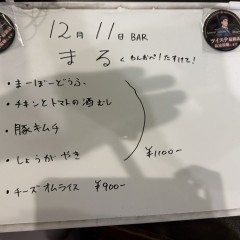 12月11日BAR
まる くわんおぺ!たすけて!
・まーぼーどうふ
・チキンとトマトの酒むし
・豚キムチ
・しょうがやき
¥1100-
・チーズオムライス ¥900-